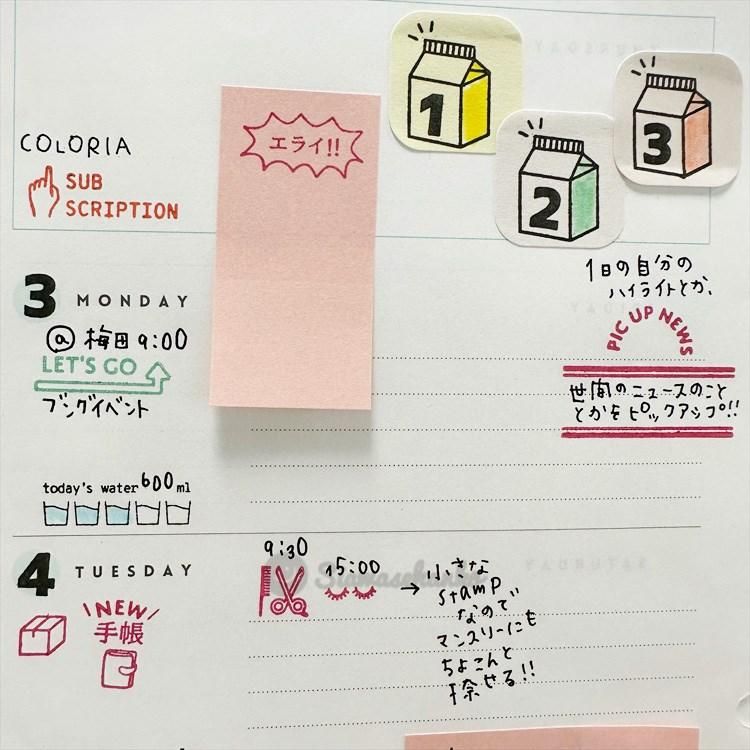 1
2
3
エライ!!
COLORIA
SUB
SCRIPTION
3 MONDAY
@ 梅田 9:00
LET'S GO
ブングイベント
today's water 600 ml
1日の自分の
ハイライトとか、
PIC UP NEWS
世間のニュースのこと
とかをピックアップ!!
4 TUESDAY
NEW
手帳
9:30
15:00
→ 小さな
stamp
なので
マンスリーにも
ちょこんと
捺せる!!
Siawasehanko